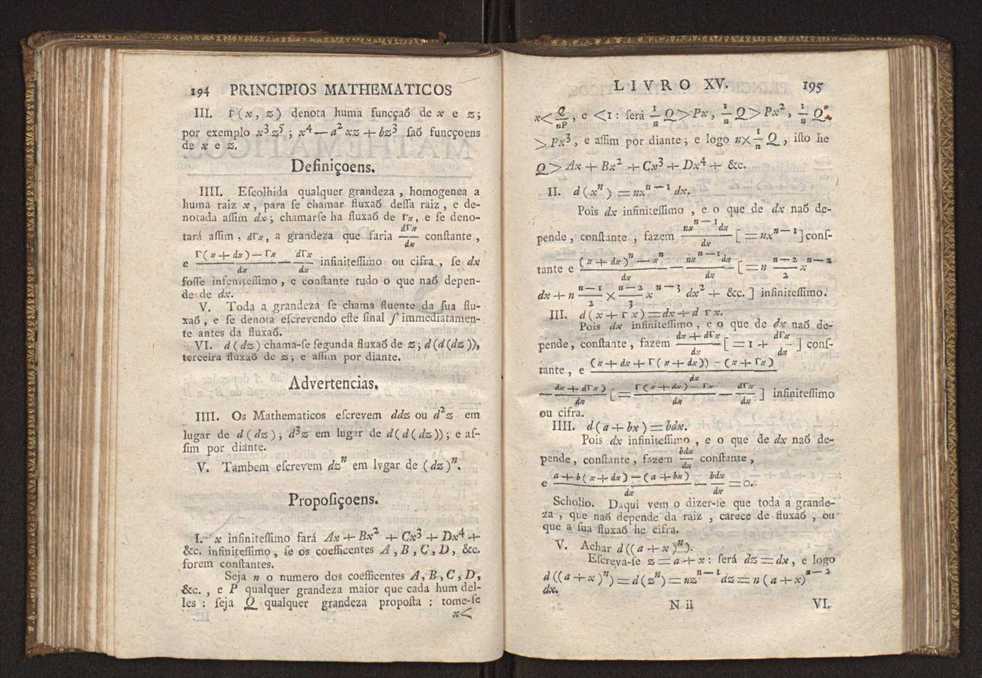 194 PRINCIPIOS MATHEMATICOS
III. Γ(x, z) denota huma funcçaõ de x e z;
por exemplo x³z²; x⁴ — a²xz + bz³ ſaõ funcçoens
de x e z.
Definiçoens.
IIII. Eſcolhida qualquer grandeza, homogenea a
huma raiz x, para ſe chamar fluxaõ deſſa raiz, e de-
notada aſſim dx; chamarſe ha fluxaõ de Γx, e ſe deno-
tará aſſim, dΓx, a grandeza que faria dΓx/dx conſtante,
e (Γ(x + dx) — Γx)/dx — dΓx/dx infiniteſſimo ou cifra, ſe dx
foſſe infeniteſſimo, e conſtante tudo o que naõ depen-
de de dx.
V. Toda a grandeza ſe chama fluente da ſua flu-
xaõ, e ſe denota eſcrevendo eſte ſinal ſ immediatamen-
te antes da fluxaõ.
VI. d(dz) chama-ſe ſegunda fluxaõ de z; d(d(dz)),
terceira fluxaõ de z; e aſſim por diante.
Advertencias.
IIII. Os Mathematicos eſcrevem ddz ou d²z em
lugar de d(dz); d³z em lugar de d(d(dz)); e aſ-
ſim por diante.
V. Tambem eſcrevem dzⁿ em lvgar de (dz)ⁿ.
Propoſiçoens.
I. x infiniteſſimo fará Ax + Bx² + Cx³ + Dx⁴ +
&c. infiniteſſimo, ſe os coefficentes A, B, C, D, &c.
forem conſtantes.
Seja n o numero dos coefficentes A, B, C, D,
&c., e P qualquer grandeza maior que cada hum del-
les: ſeja Q qualquer grandeza propoſta: tome-ſe
x<
LIVRO XV. 195
x< Q/nP, e <1: ſerá 1/n Q>Px, 1/n Q>Px², 1/n Q
>Px³, e aſſim por diante; e logo n× 1/n Q, iſto he
Q>Ax + Bx² + Cx³ + Dx⁴ + &c.
II. d(xⁿ) = nxⁿ⁻¹ dx.
Pois dx infiniteſſimo, e o que de dx naõ de-
pende, conſtante, fazem nxⁿ⁻¹dx/dx [= nxⁿ⁻¹] conſ-
tante e ((x + dx)ⁿ — xⁿ)/dx — nxⁿ⁻¹dx/dx [= n (n — 1)/2 xⁿ⁻²
dx + n (n — 1)/2 × (n — 2)/3 xⁿ⁻³ dx² + &c.] infiniteſſimo.
III. d(x + Γx) = dx + dΓx.
Pois dx infiniteſſimo, e o que de dx naõ de-
pende, conſtante, fazem (dx + dΓx)/dx [= 1 + dΓx/dx] conſ-
tante, e ((x + dx + Γ(x + dx)) — (x + Γx))/dx
— (dx + dΓx)/dx [= (Γ(x + dx) — Γx)/dx — dΓx/dx] infiniteſſimo
ou cifra.
IIII. d(a + bx) = bdx.
Pois dx infiniteſſimo, e o que de dx naõ de-
pende, conſtante, fazem bdx/dx conſtante,
e (a + b(x + dx) — (a + bx))/dx — bdx/dx = 0.
Scholio. Daqui vem o dizer-ſe que toda a grande-
za, que naõ depende da raiz, carece de fluxaõ, ou
que a ſua fluxaõ he cifra.
V. Achar d((a + x)ⁿ).
Eſcreva-ſe z = a + x: ſerá dz = dx, e logo
d((a + x)ⁿ) = d(zⁿ) = nzⁿ⁻¹ dz = n(a + x)ⁿ⁻²
dx.
N ii VI.